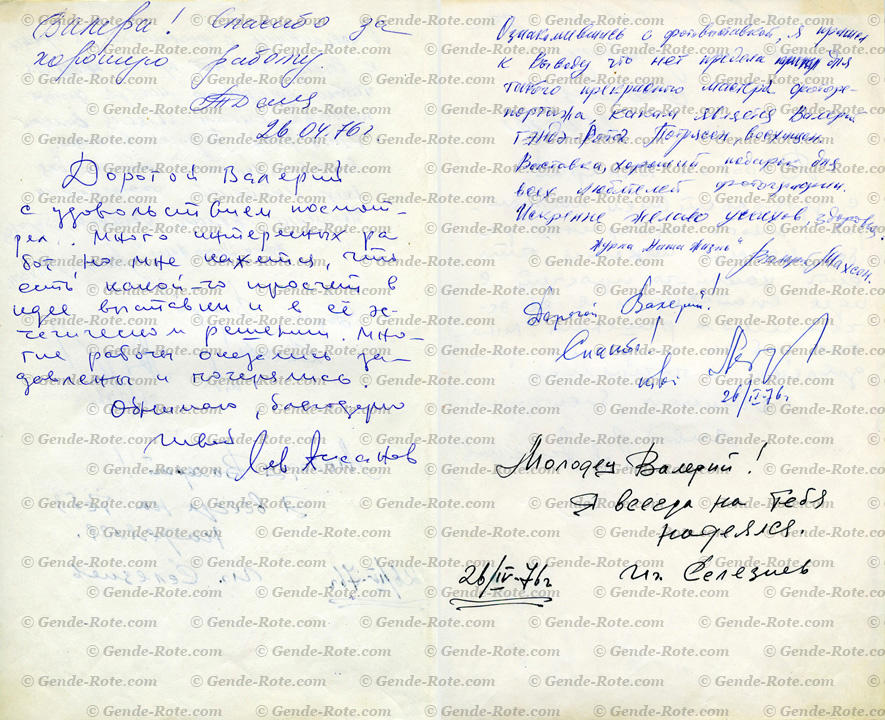 Валера! Спасибо за
хорошую работу.
26.04.76г
Дорогой Валерий
с удовольствием посмот-
рел. Много интересных ра
бот, но мне кажется, что
есть какой-то просчет в
идее выставки и в её эс-
тетическом решении. Мно-
гие работы оказались за-
давлены и потерялись.
Обнимаю, благодарю
твой
Лев Ассанов
Ознакомившись с фотовыставкой, я пришел
к выводу, что нет предела для
такого прекрасного мастера фоторе-
портажа, каким является Валерий
Генде-Роте. Потрясен, восхищен.
Выставка, хороший подарок для
всех любителей фотографии.
Искренне желаю успехов, здоровья.
Журнал "Наша Жизнь"
Дорогой Валерий!
Спасибо!
твой
26/IV-76г
Молодец Валерий!
Я всегда на тебя
надеялся.
26/IV-76г Ил. Селезнев
© Gende-Rote.com